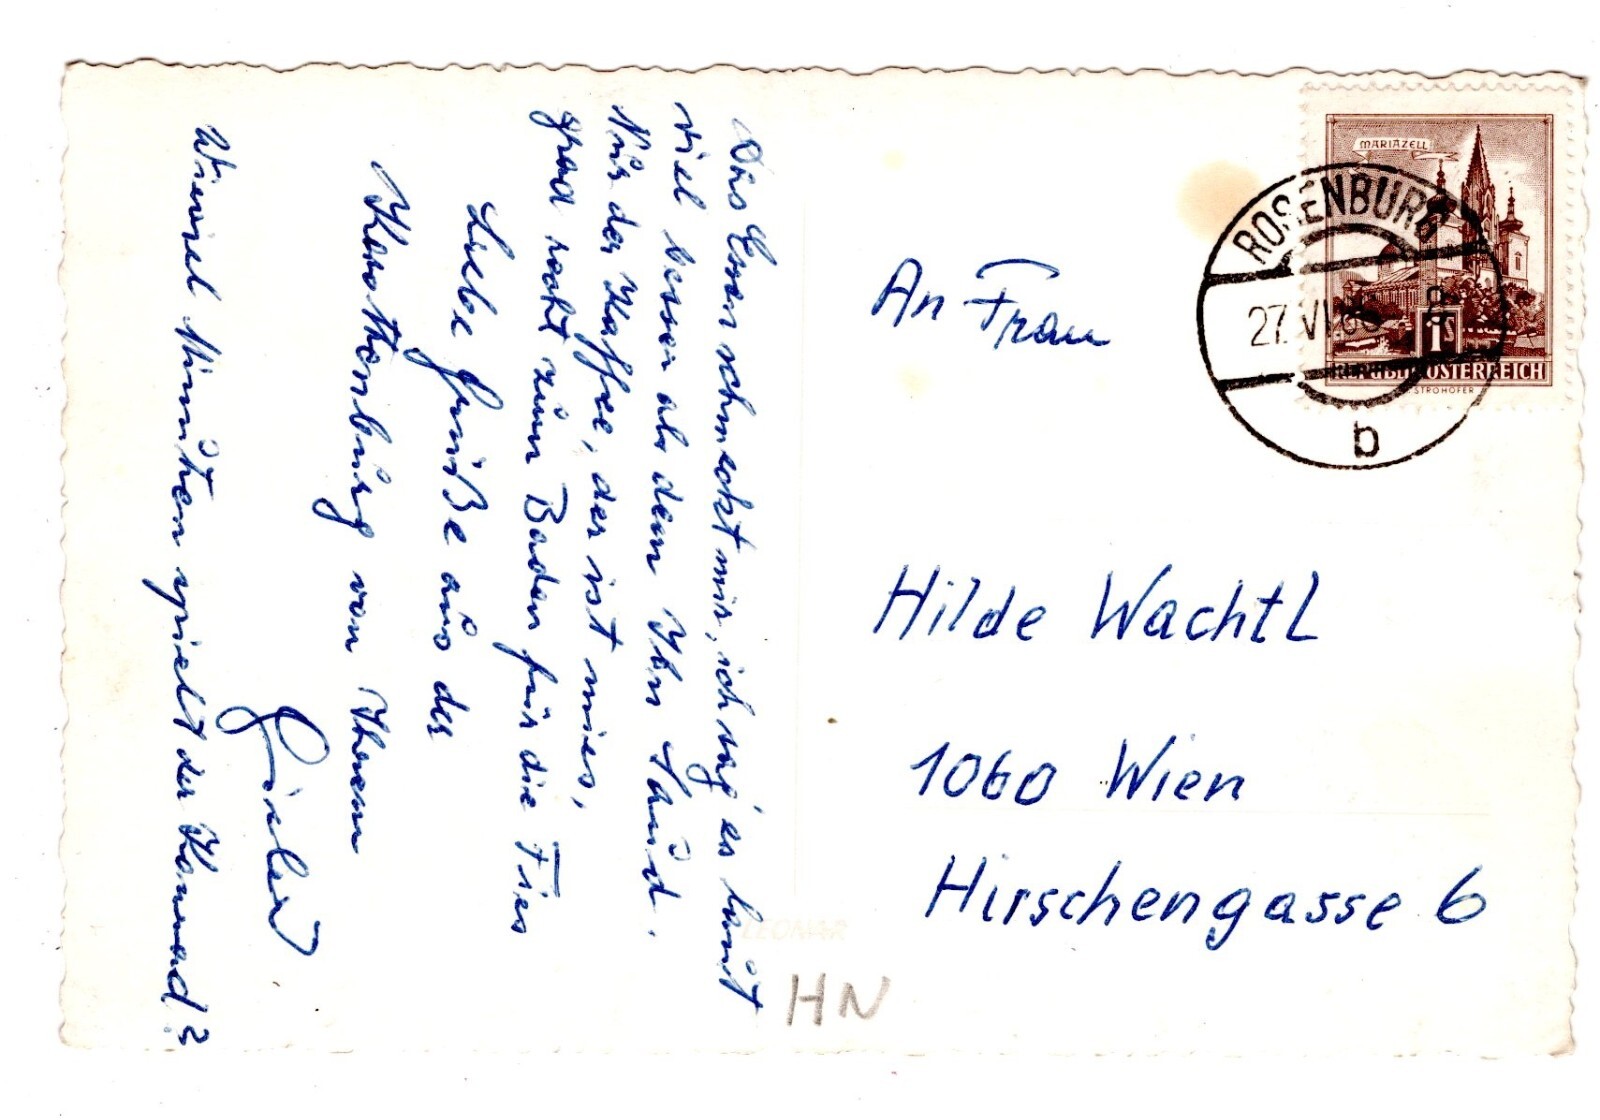 Das Essen schmeckt mir, ich sag' es laut
viel besser als dem Ibn Saud.
Nur der Kaffee, der ist mies,
grad recht zum Baden für die Fies
Liebe Grüße aus der
von Ihrem
Wieviel Minuten spielt der Konrad?
An Frau
Hilde Wachtl
1060 Wien
Hirschengasse 6
MARIAZELL
1 S
REPUBLIK ÖSTERREICH
STROHOFER
ROSENBURG
27. VI.
b
LEONAR
HN